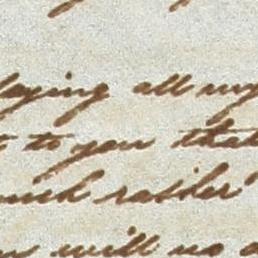 laying all my
to you that
much rasher
will no